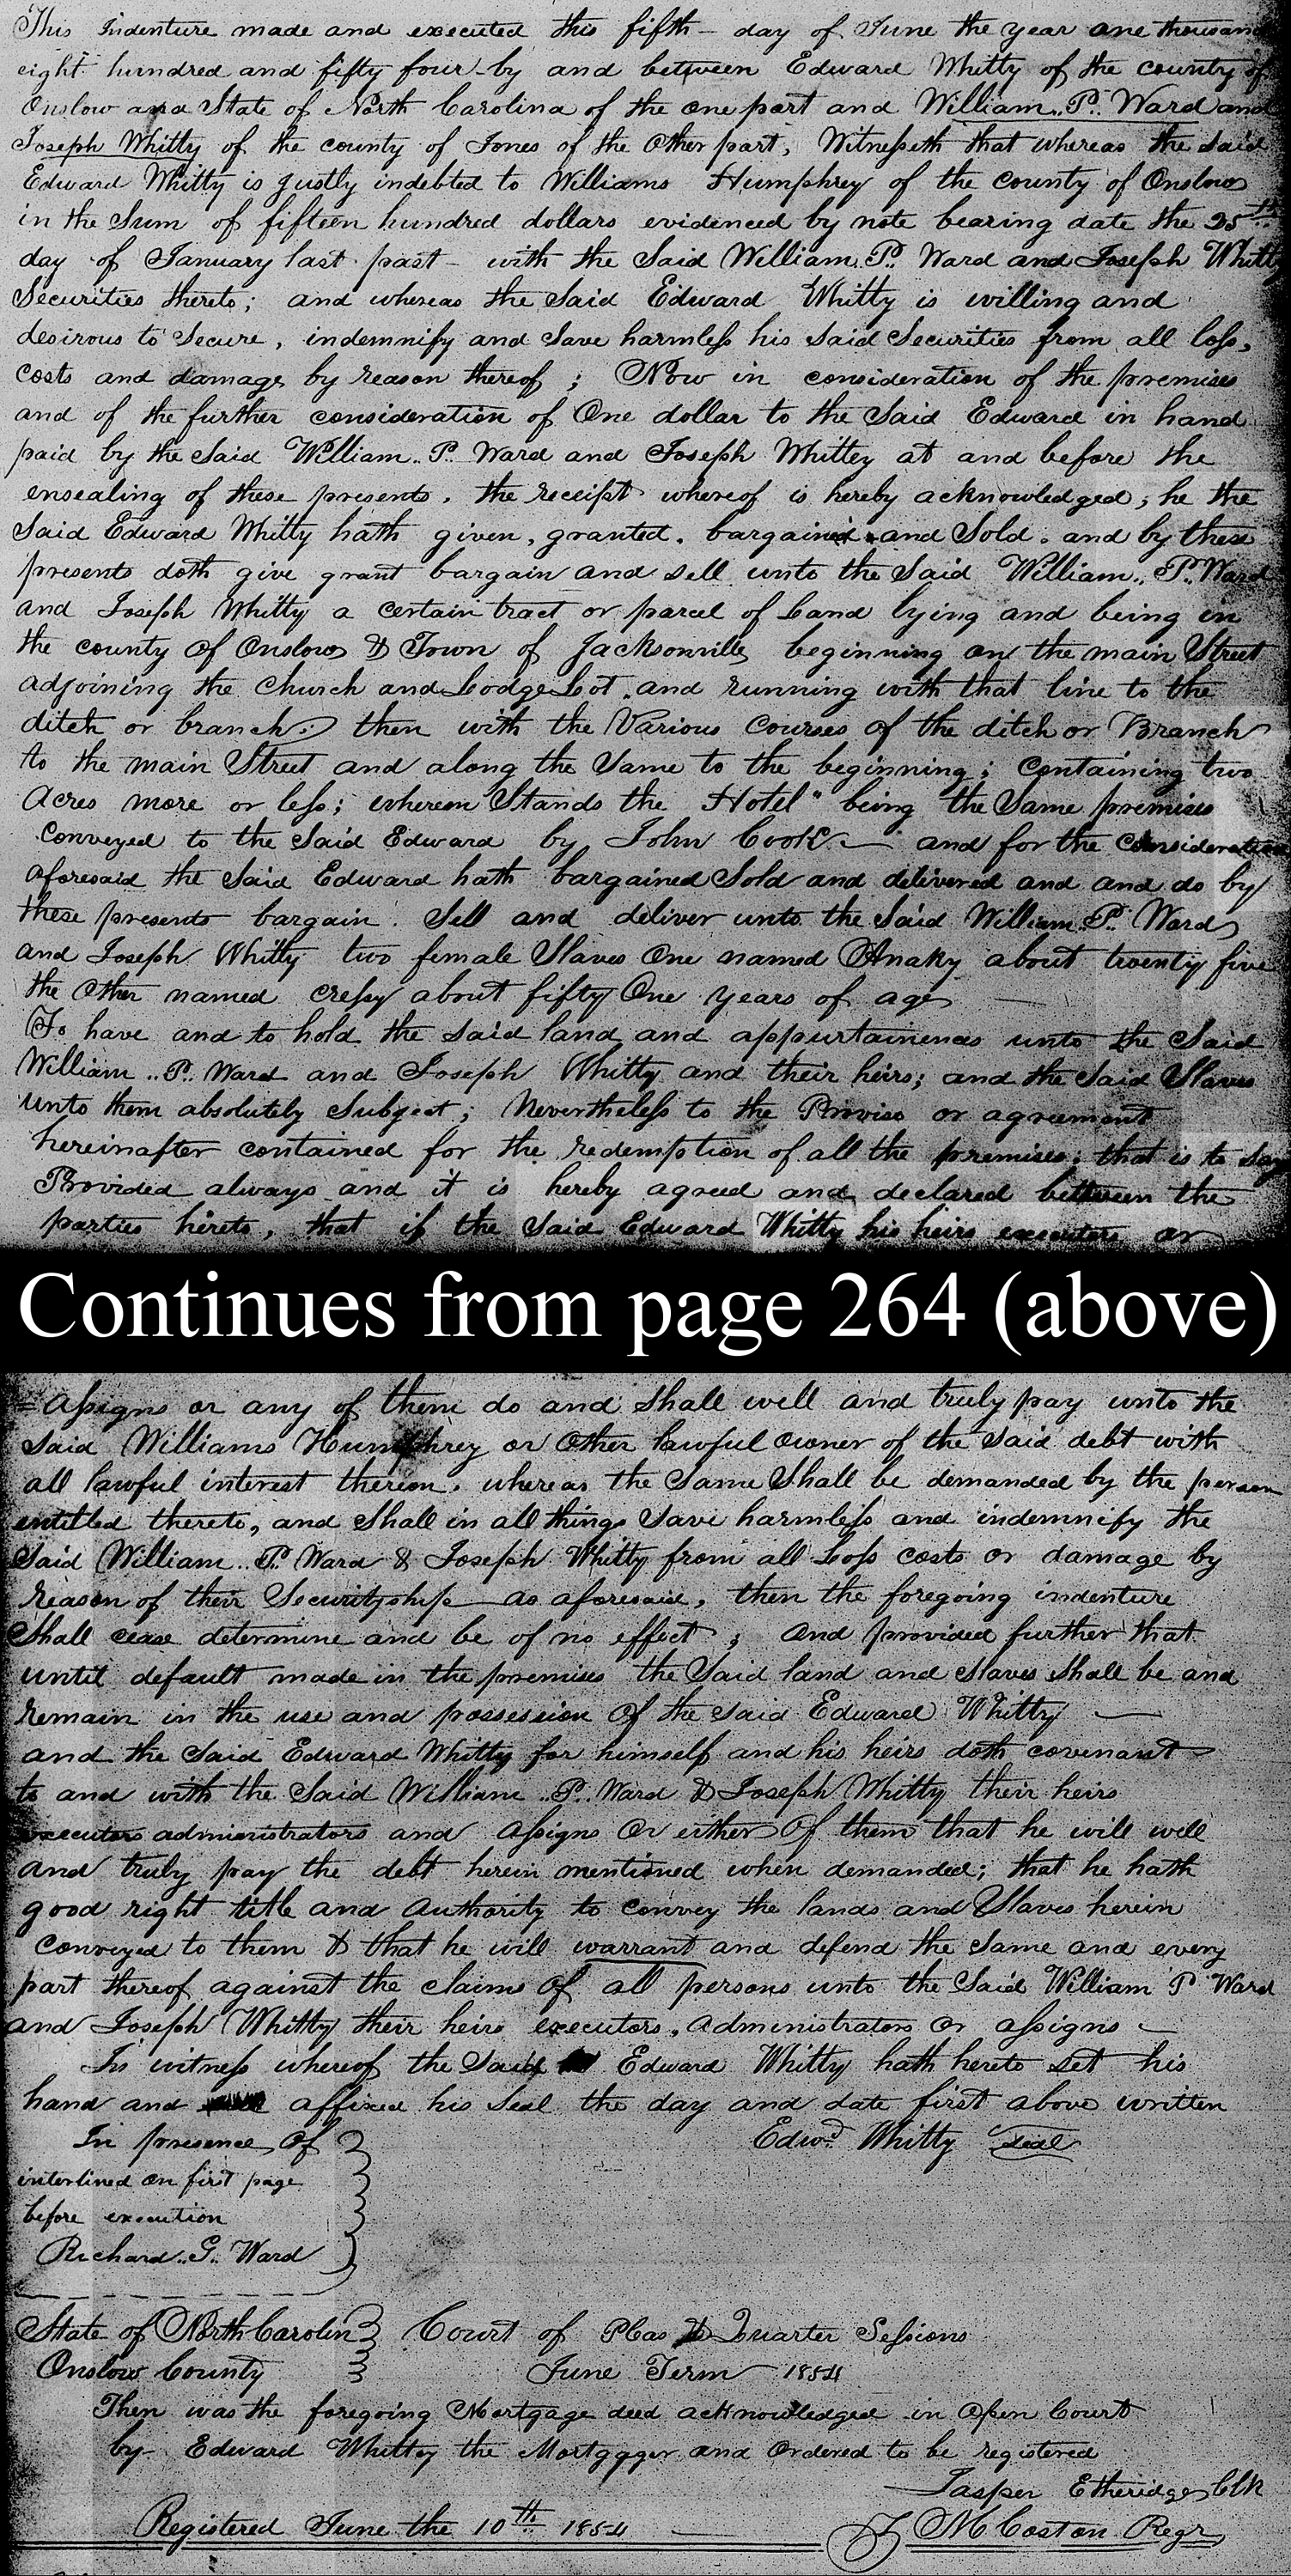 This Indenture made and executed this fifth - day of June the year one thousand
eight hundred and fifty four - by and between Edward Whitty of the county of
Onslow and State of North Carolina of the one part and William.. P.. Ward and
Joseph Whitty of the county of Jones of the Other part, Witnesseth that whereas the Said
Edward Whitty is justly indebted to Williams Humphrey of the county of Onslow
in the Sum of fifteen hundred dollars evidenced by note bearing date the 25th
day of January last past - with the Said William.. P.. Ward and Joseph Whitty
Securities thereto; and whereas the Said Edward Whitty is willing and
desirous to Secure, indemnify and Save harmless his Said Securities from all loss,
costs and damage by reason thereof ; Now in consideration of the premises
and of the further consideration of One dollar to the Said Edward in hand
paid by the Said William.. P.. Ward and Joseph Whittey at and before the
ensealing of these presents, the receipt whereof is hereby acknowledged; he the
Said Edward Whitty hath given, granted, bargained and Sold, and by these
presents doth give grant bargain and sell unto the Said William.. P.. Ward
and Joseph Whitty a certain tract or parcel of Land lying and being in
the county of Onslow & Town of Jacksonville beginning on the main Street
adjoining the Church and Lodge Lot, and running with that line to the
ditch or branch; then with the Various Courses of the ditch or Branch
to the main Street and along the Same to the beginning; Containing two
Acres more or less; whereon Stands the Hotel" being the Same premises
Conveyed to the Said Edward by John Cook — and for the Consideration
aforesaid the Said Edward hath bargained Sold and delivered and and do by
these presents bargain. Sell and deliver unto the Said William.. P.. Ward
and Joseph Whitty two female Slaves One named Anaky about twenty five
the Other named cresy about fifty One years of age —
To have and to hold the Said land and appurtainences unto the Said
William .. P.. Ward and Joseph Whitty and their heirs; and the Said Slaves
unto them absolutely Subject; Nevertheless to the Proviso or agreement
hereinafter contained for the redemption of all the premises; that is to Say
Provided always and it is hereby agreed and declared between the
parties hereto, that if the Said Edward Whitty his heirs executors or
Continues from page 264 (above)
= Assigns or any of them do and Shall well and truly pay unto the
Said Williams Humphrey or Other lawful owner of the Said debt with
all lawful interest thereon, whereas the Same Shall be demanded by the person
entitled thereto, and Shall in all things Save harmless and indemnify the
Said William.. P. Ward & Joseph Whitty from all Loss costs or damage by
reason of their Securityship as aforesaid, then the foregoing indenture
Shall cease determine and be of no effect ; and provided further that
until default made in the premises the Said land and slaves Shall be and
remain in the use and possession Of the Said Edward Whitty —
and the Said Edward Whitty for himself and his heirs doth covenant
to and with the Said William .. P.. Ward & Joseph Whitty their heirs
executors administrators and Assigns Or either Of them that he will well
and truly pay the debt herein mentioned when demanded; that he hath
good right title and Authority to convey the lands and Slaves herein
Conveyed to them & that he will warrant and defend the Same and every
part thereof against the claims Of all persons unto the Said William P Ward
and Joseph Whitty their heirs executors, Administrators Or assigns —
In witness whereof the Said Edward Whitty hath hereto set his
hand and affixed his Seal the day and date first above written
In presence Of Edwd. Whitty Seal
interlined on first page
before execution
Richard.. G. Ward
State of North Carolin Court of Pleas & Quarter Sessions
Onslow County June Term 1854
Then was the foregoing Mortgage deed acknowledged in Open Court
by - Edward Whittey the Mortgagor and Ordered to be registered
Jasper Etheridge Clk
Registered June the 10th 1854 — J M Coston Regr